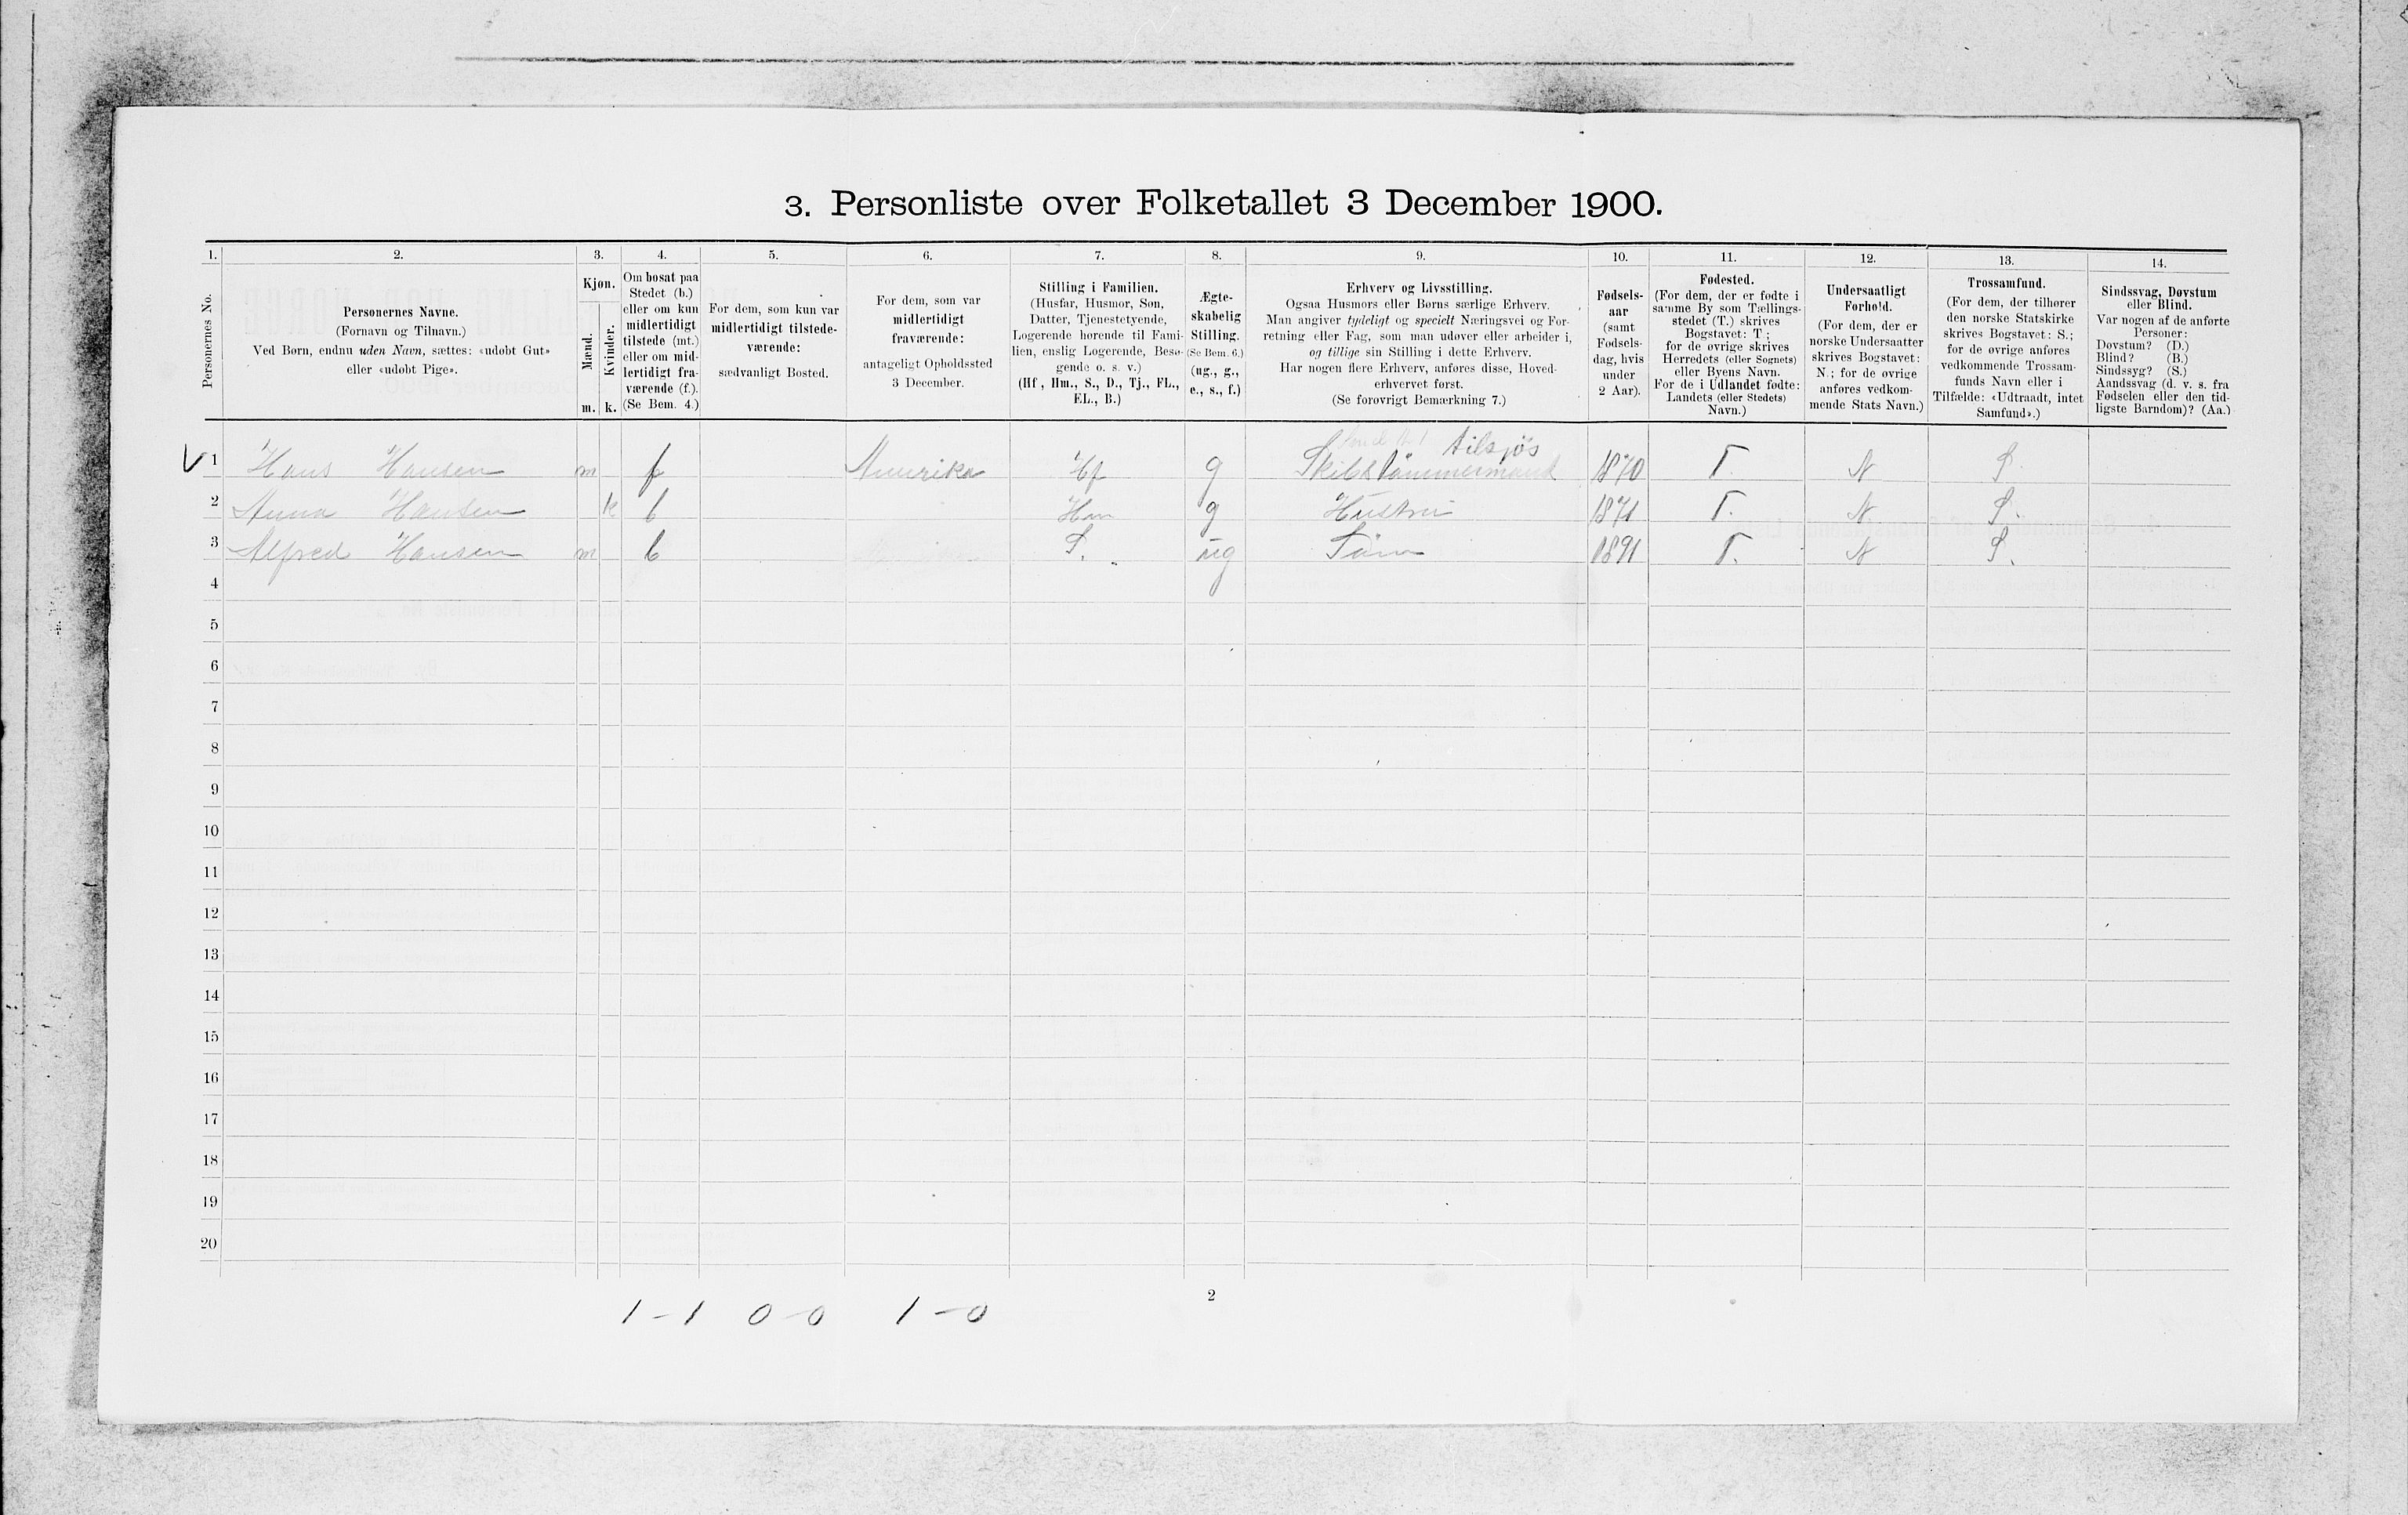 3. Personliste over Folketallet 3 December 1900.
1. 2. 3. 4. 5. 6. 7. 8. 9. 10. 11. 12. 13. 14.
Personernes No.
Personernes Navne.
(Fornavn og Tilnavn.)
Ved Børn, endnu uden Navn, sættes: «udøbt Gut»
eller «udøbt Pige».
Kjøn.
Mænd.
Kvinder.
m. k.
Om bosat paa
Stedet (b.)
eller om kun
midlertidigt
tilstede (mt.)
eller om mid-
lertidigt fra-
værende (f.).
(Se Bem. 4.)
For dem, som kun var
midlertidigt tilstede-
værende:
sædvanligt Bosted.
For dem, som var
midlertidigt
fraværende:
antageligt Opholdssted
3 December.
Stilling i Familien.
(Husfar, Husmor, Søn,
Datter, Tjenestetyende,
Logerende hørende til Fami-
lien, enslig Logerende, Besø-
gende o. s. v.)
(Hf., Hm., S., D., Tj., FL.,
EL., B.)
Ægte-
skabelig
Stilling.
(Se Bem. 6.)
(ug., g.,
e., s., f.)
Erhverv og Livsstilling.
Ogsaa Husmors eller Børns særlige Erhverv.
Man angiver tydeligt og specielt Næringsvei og For-
retning eller Fag, som man udøver eller arbeider i,
og tillige sin Stilling i dette Erhverv.
Har nogen flere Erhverv, anføres disse, Hoved-
erhvervet først.
(Se forøvrigt Bemærkning 7.)
Fødsels-
aar
(samt
Fødsels-
dag, hvis
under
2 Aar).
Fødested.
(For dem, der er fødte i
samme By som Tællings-
stedet (T.) skrives
Bogstavet: T.;
for de øvrige skrives
Herredets (eller Sognets)
eller Byens Navn.
For de i Udlandet fødte:
Landets (eller Stedets)
Navn.)
Undersaatligt
Forhold.
(For dem, der er
norske Undersaatter
skrives Bogstavet:
N.; for de øvrige
anføres vedkom-
mende Stats Navn.)
Trossamfund.
(For dem, der tilhører
den norske Statskirke
skrives Bogstavet: S.;
for de øvrige anføres
vedkommende Trossam-
funds Navn eller i
Tilfælde: «Udtraadt, intet
Samfund».)
Sindssvag, Døvstum
eller Blind.
Var nogen af de anførte
Personer:
Døvstum? (D.)
Blind? (B.)
Sindssyg? (S.)
Aandssvag (d. v. s. fra
Fødselen eller den tid-
ligste Barndom)? (Aa.)
tilsjøs
V 1 Hans Hansen m f Amerika Hf g Skibstømmermand 1870 T. N S
2 Anna Hansen k b Hm g Hustru 1871 T. N S.
3 Alfred Hansen m b S. ug Søn 1891 T. N S.
4
5
6
7
8
9
10
11
12
13
14
15
16
17
18
19
20
1-1 0-0 1-0
2